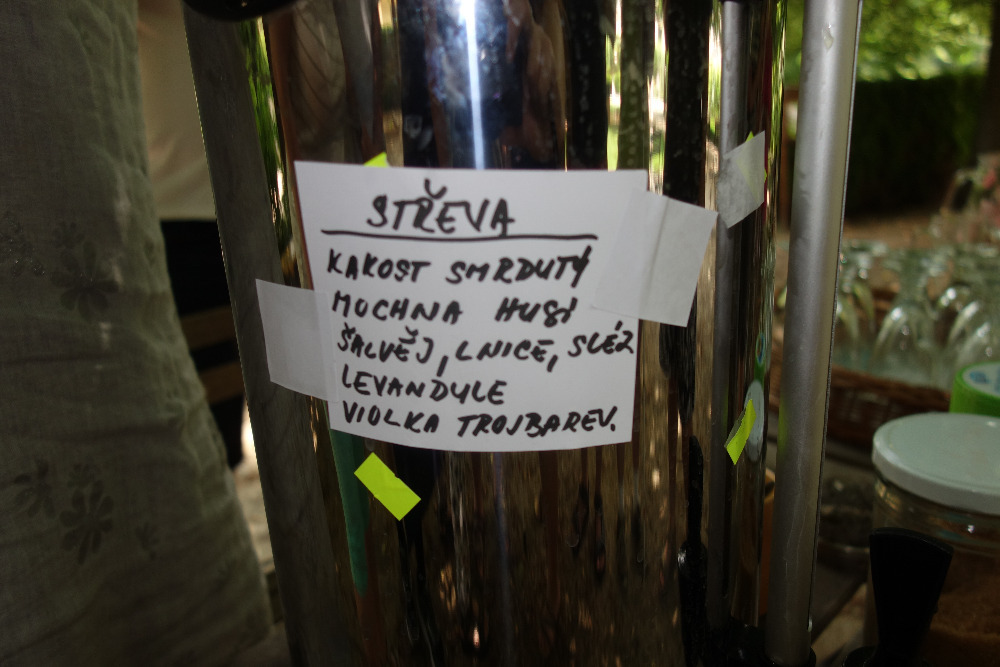 STŘEVA
KAKOST SMRDUTÝ
MOCHNA HUSÍ
ŠALVĚJ, LNICE, SLÉZ
LEVANDULE
VIOLKA TROJBAREV.